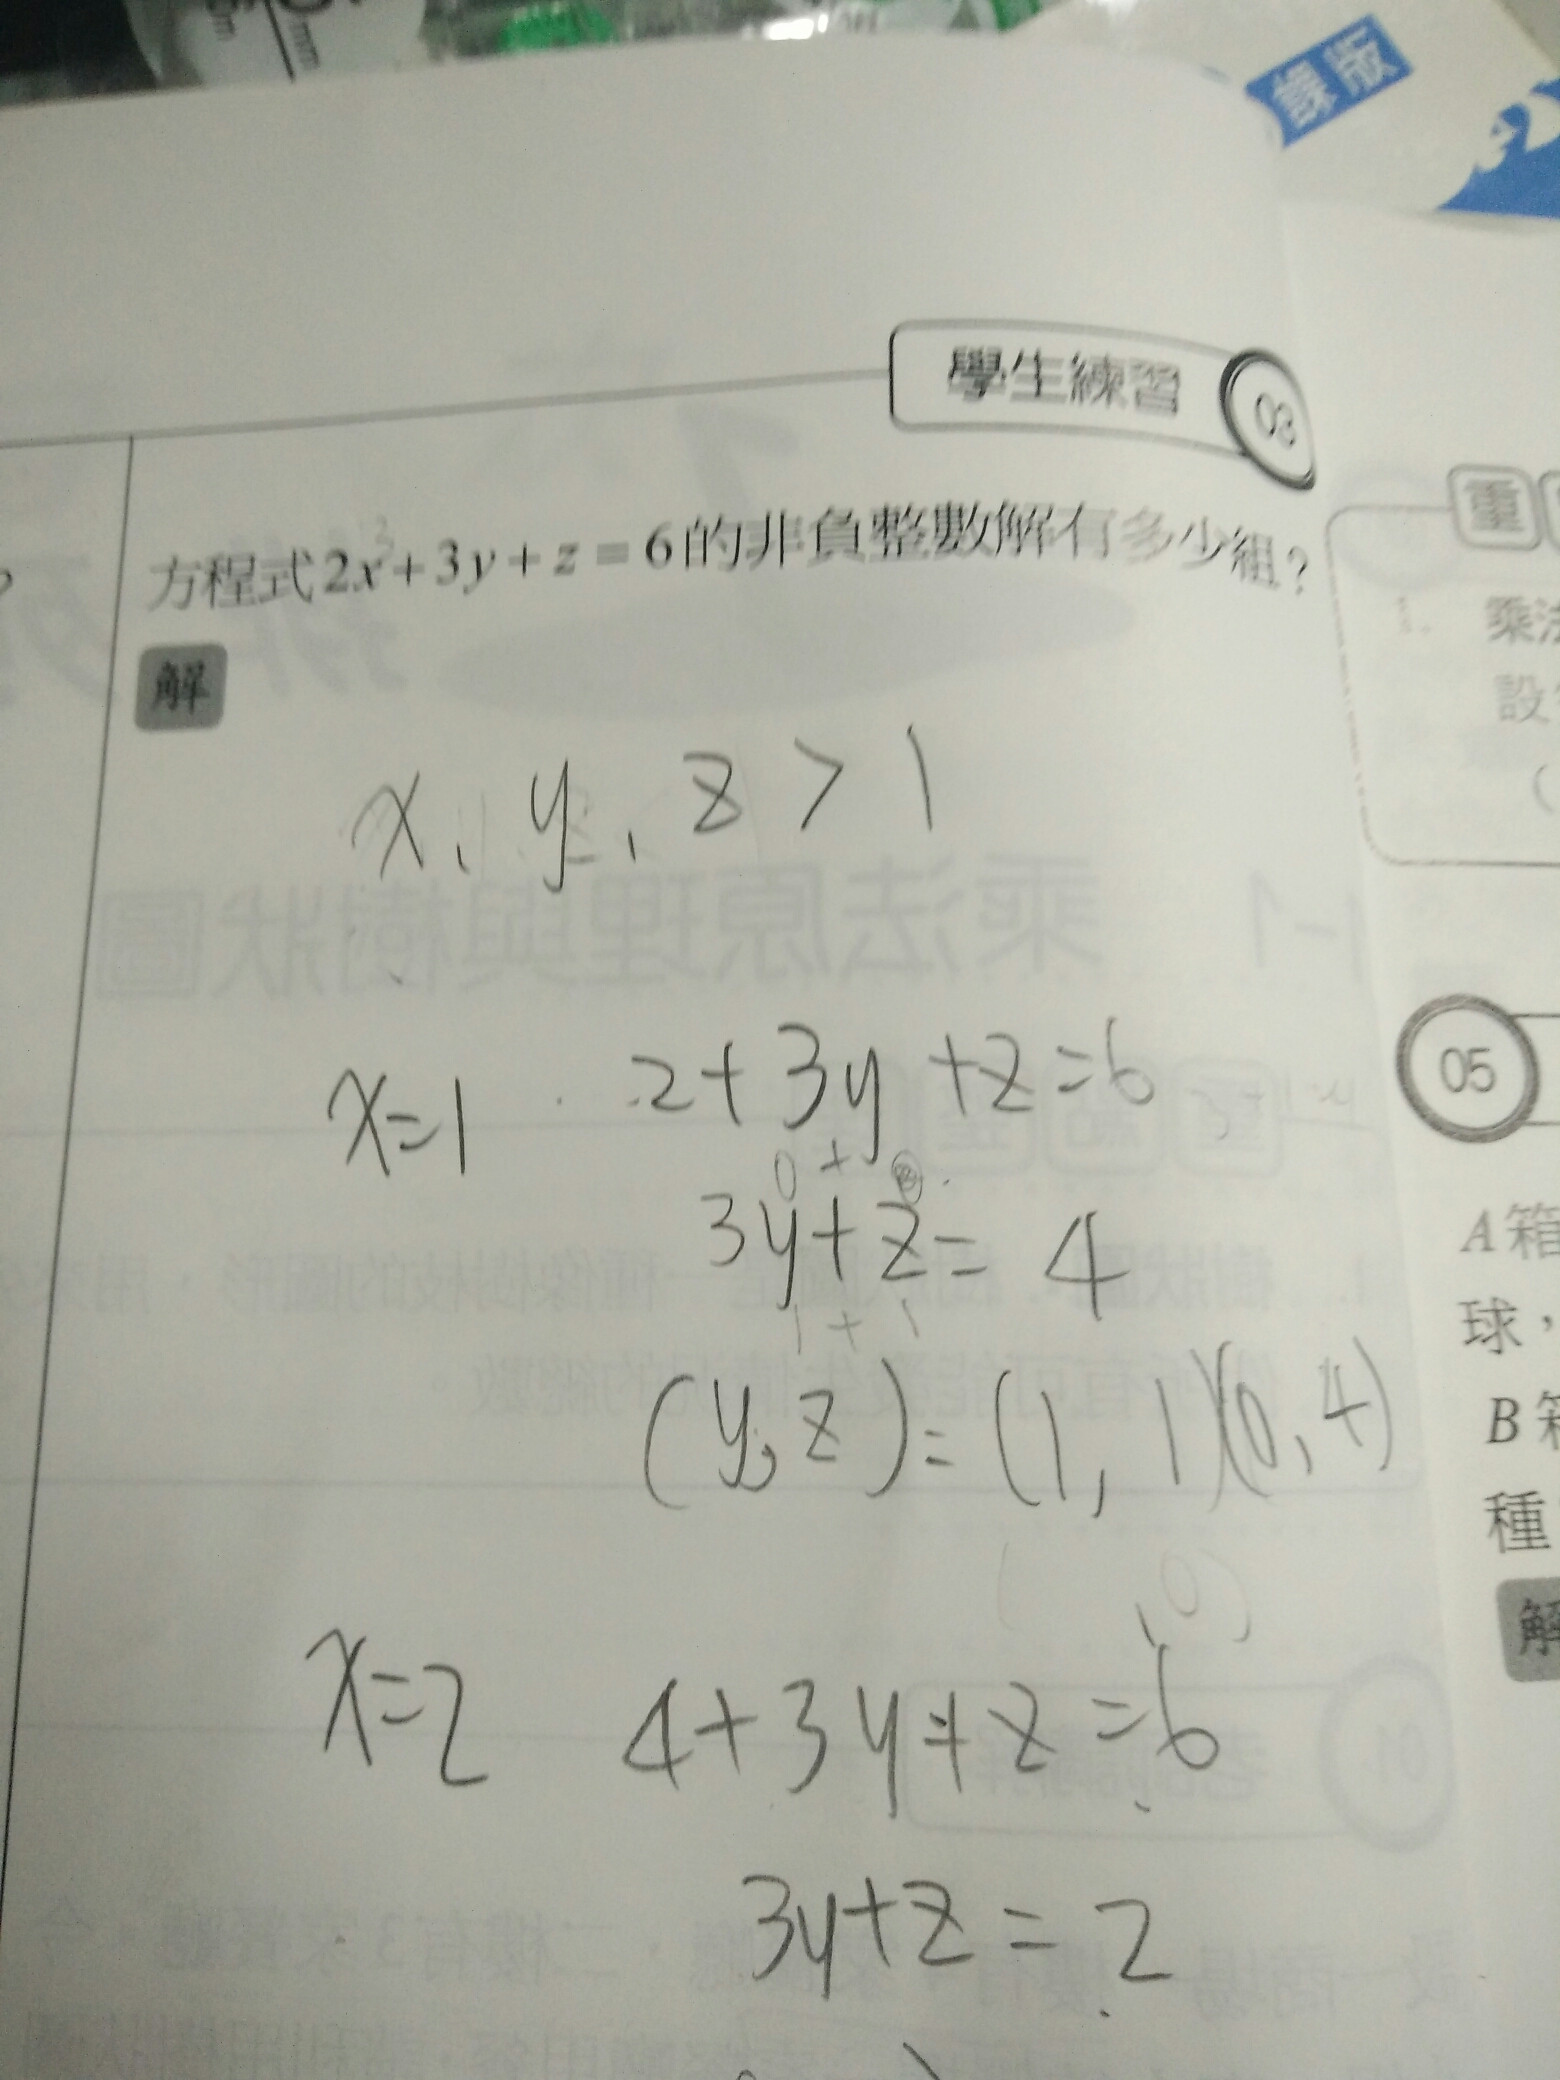 課版
mm
學生練習 03
方程式2x+3y+z=6的非負整數解有多少組?
解
x, y, z > 1
x=1 2+3y+z=6
0+
3y+z=4
1+1
(y,z)=(1,1)(0,4)
( ,0)
x=2 4+3y+z=6
3y+z=2
重
乘法
設
(
05
A箱
球,
B箱
種
解